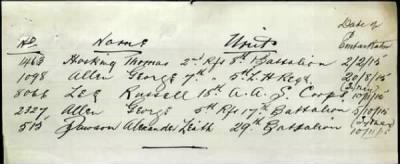 Date of
No. Name Unit Embarkation
1463 Hosking Thomas 2nd Rfs 8th Battalion 2/2/15
1098 Allen George 7th " 5th L.H. Regt. 20/8/15
8066 Lee Russell 15th A.A.S. Corps 10/11/15
2327 Allen George 5th Rfs 17th Battalion 5/10/15
513 Dawson Alexander Leith 29th Battalion 10/11/15